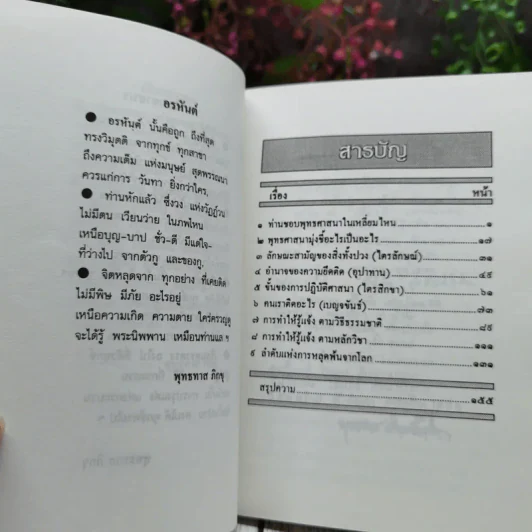 อรหันต์
● อรหันต์ นั้นคือถูก ถึงที่สุด
ทรงวิมุตติ จากทุกข์ ทุกสาขา
ถึงความเต็ม แห่งมนุษย์ สุดพรรณนา
ควรแก่การ วันทา ยิ่งกว่าใคร,
● ท่านหักแล้ว ซึ่งวง แห่งวัฏฏ์วน
ไม่มีตน เวียนว่าย ในภพไหน
เหนือบุญ-บาป ชั่ว-ดี มีแต่ใจ-
ที่ว่างไป จากตัวกู และของกู.
● จิตหลุดจาก ทุกอย่าง ที่เคยติด
ไม่มีพิษ มีภัย อะไรอยู่
เหนือความเกิด ความตาย ใคร่ครวญดู
จะได้รู้ พระนิพพาน เหมือนท่านแล ฯ
พุทธทาส ภิกขุ
สารบัญ
เรื่อง หน้า
๑ ท่านชอบพุทธศาสนาในเหลี่ยมไหน ๑
๒ พุทธศาสนามุ่งชี้อะไรเป็นอะไร ๑๗
๓ ลักษณะสามัญของสิ่งทั้งปวง (ไตรลักษณ์) ๓๑
๔ อำนาจของความยึดติด (อุปาทาน) ๔๙
๕ ขั้นของการปฏิบัติศาสนา (ไตรสิกขา) ๖๑
๖ คนเราติดอะไร (เบญจขันธ์) ๗๓
๗ การทำให้รู้แจ้ง ตามวิธีธรรมชาติ ๘๙
๘ การทำให้รู้แจ้ง ตามหลักวิชา ๑๑๑
๙ ลำดับแห่งการหลุดพ้นจากโลก ๑๓๑
สรุปความ ๑๕๕